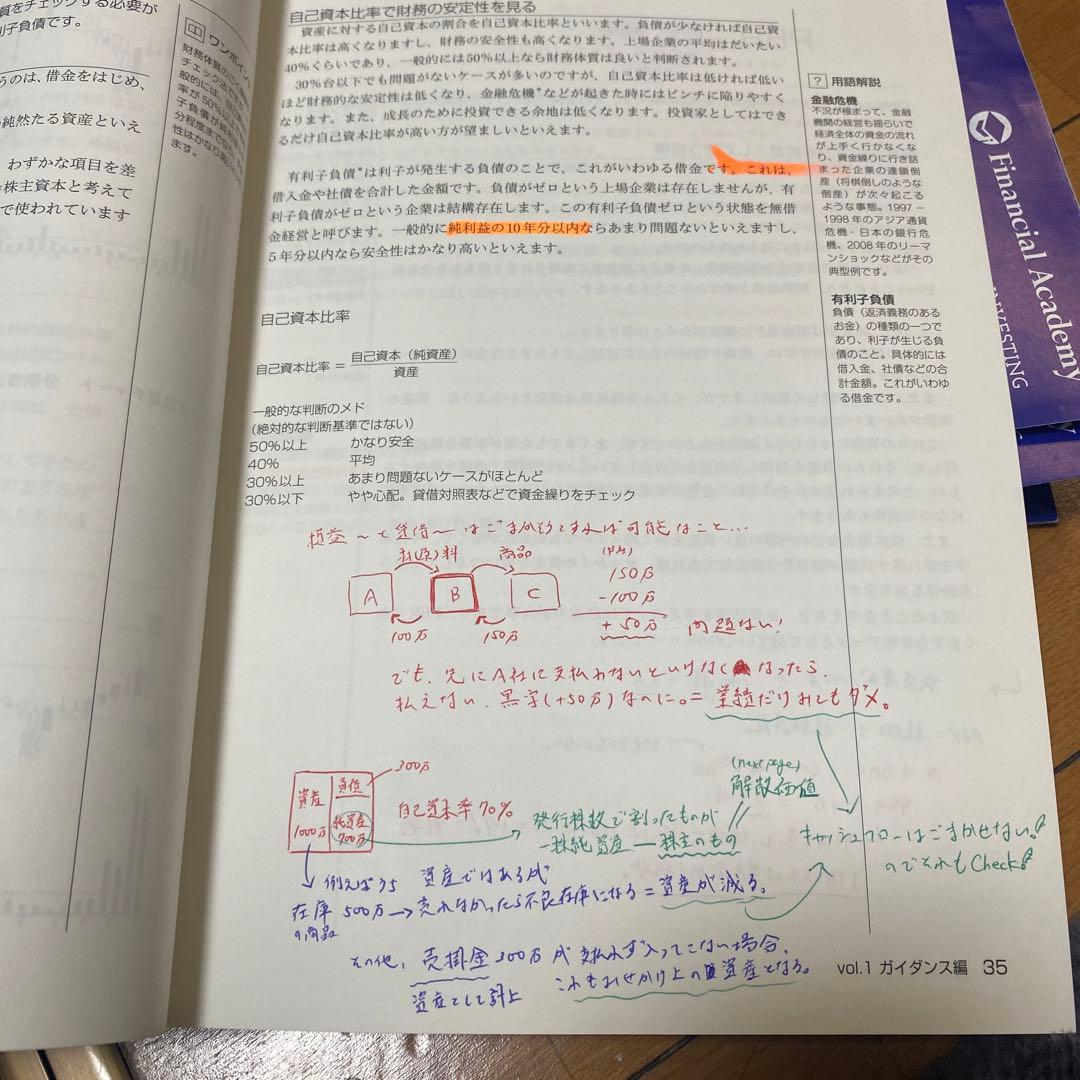 質をチェックする必要が
利子負債です。
うのは、借金をはじめ、
純然たる資産といえ
わずかな項目を差
株主資本と考えて
で使われています
ワンポイン
自己資本比率で財務の安定性を見る
資産に対する自己資本の割合を自己資本比率といいます。負債が少なければ自己資
本比率は高くなりますし、財務の安全性も高くなります。上場企業の平均はだいたい
40%くらいであり、一般的には50%以上なら財務体質は良いと判断されます。
30%台以下でも問題がないケースが多いのですが、自己資本比率は低ければ低い
ほど財務的な安定性は低くなり、金融危機*などが起きた時にはピンチに陥りやすく
なります。また、成長のために投資できる余地は低くなります。投資家としてはでき
るだけ自己資本比率が高い方が望ましいといえます。
有利子負債*は利子が発生する負債のことで、これがいわゆる借金です。これは、
借入金や社債を合計した金額です。負債がゼロという上場企業は存在しませんが、有
利子負債がゼロという企業は結構存在します。この有利子負債ゼロという状態を無借
金経営と呼びます。一般的に純利益の10年分以内ならあまり問題ないといえますし、
5年分以内なら安全性はかなり高いといえます。
自己資本比率
自己資本比率 = 自己資本（純資産）
資産
一般的な判断のメド
(絶対的な判断基準ではない)
50%以上 かなり安全
40% 平均
30%以上 あまり問題ないケースがほとんど
30%以下 やや心配。貸借対照表などで資金繰りをチェック
? 用語解説
金融危機
不況が極まって、金融
機関の経営も揺らいで
経済全体の資金の流れ
が上手く行かなくな
り、資金繰りに行き詰
まった企業の連鎖倒
産（将棋倒しのような
倒産）が次々起こる
ような事態。1997－
1998年のアジア通貨
危機・日本の銀行危
機、2008年のリーマ
ンショックなどがその
典型例です。
有利子負債
負債（返済義務のある
お金）の種類の一つで
あり、利子が生じる負
債のこと。具体的には
借入金、社債などの合
計金額。これがいわゆ
る借金です。
損益〜と貸借〜はごまかそうとすれば可能なこと…
材(原)料 商品
A B C
100万 150万
150万
-100万
+50万
問題ない!
でも、先にA社に支払わないといけなくなったら
払えない、黒字(+50万)なのに。= 業績だけみてもダメ。
資産 1000万
負債
純資産 700万
300万
自己資本率70%
発行株数で割ったものが
一株純資産 — 株主のもの
(next page)
解散価値
キャッシュフローはごまかせない。
のでそれもCheck!
例えばうち 資産ではあるが
在庫 500万→売れなかったら不良在庫になる=資産が減る。
の商品
その他、売掛金300万が支払れず入ってこない場合、
資産として計上 これもみせかけ上の資産となる。
vol.1 ガイダンス編 35
Financial Academy
INVESTING